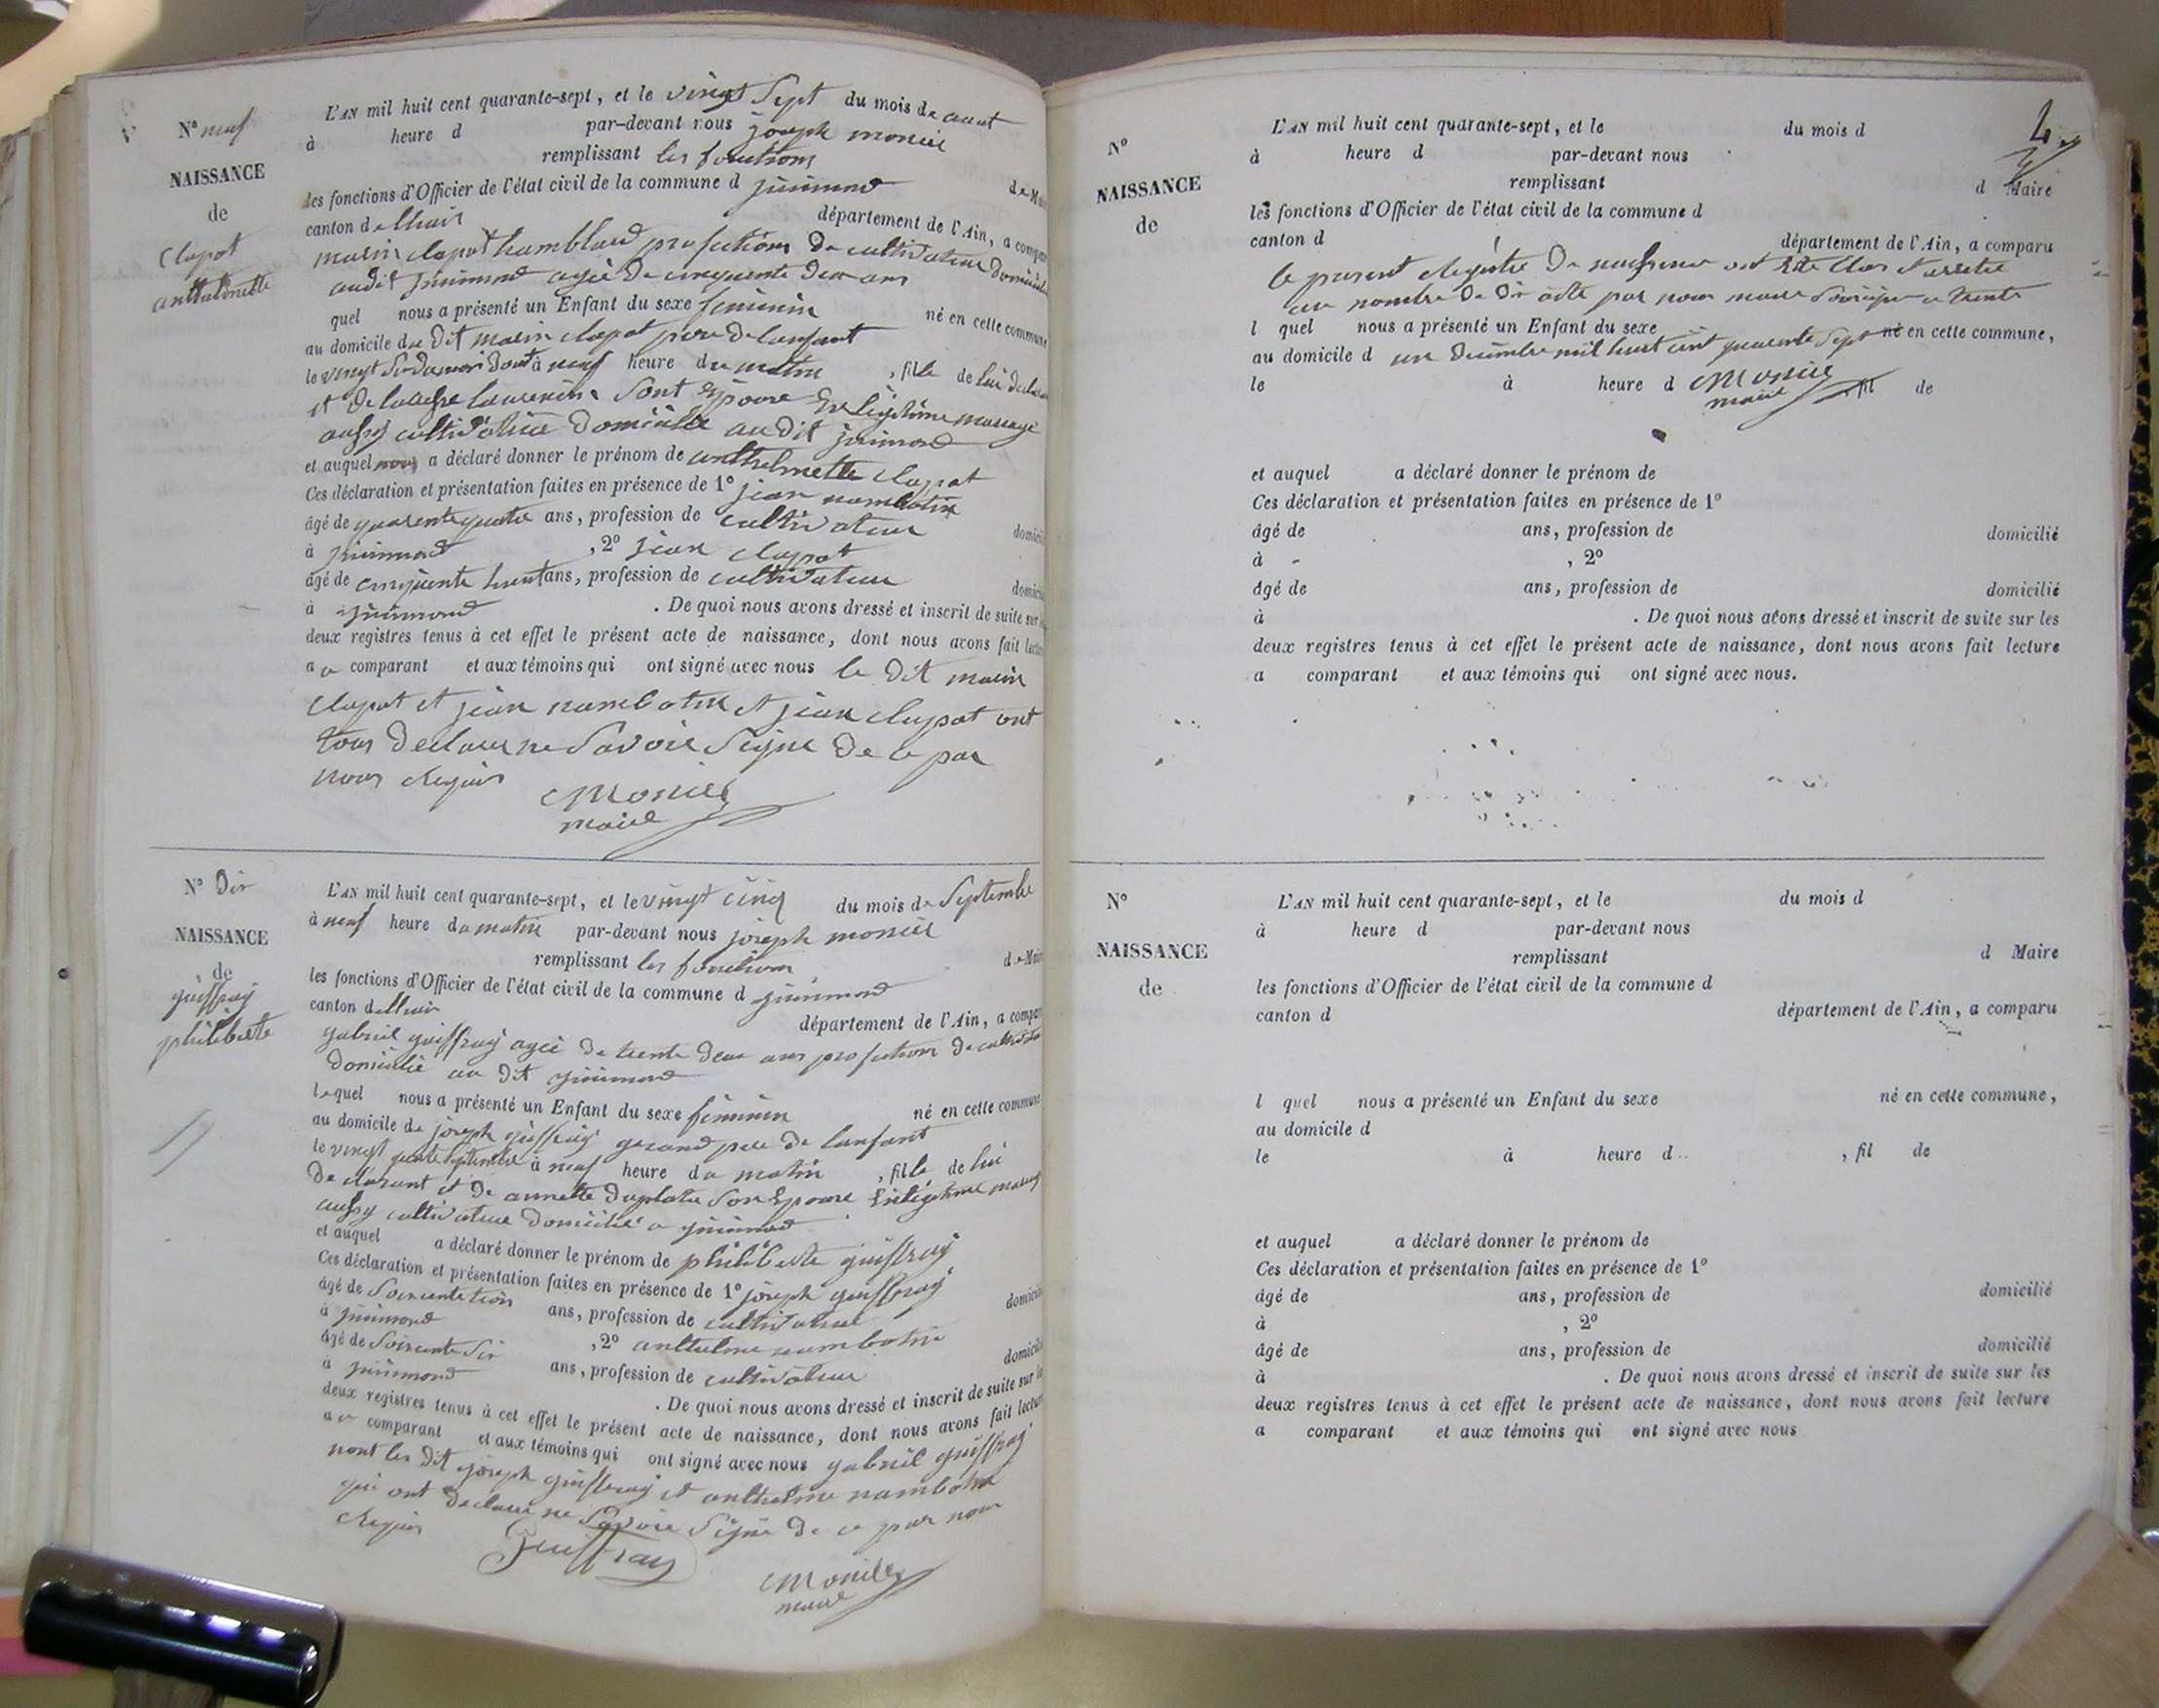 N° neuf
NAISSANCE
de
Clapot
anthelmette
L'AN mil huit cent quarante-sept, et le vingt Sept du mois de aout
à heure d par-devant nous joseph monier
remplissant les fonctions
les fonctions d'Officier de l'état civil de la commune d jujurieux de Mai
canton de lhuis département de l'Ain, a compar
marin clapot humbland profection de cultivateur domicilié
audit agée de cinquente deux ans
quel nous a présenté un Enfant du sexe feminin né en cette commune
au domicile du Dit marin clapot pere de lanfant
le vingt Six du moi dout à neuf heure du matin , fille de lui declara
et de laurencin Sont Epouse En legitime mariage
aussy cultivatrice Domicilié au dit
et auquel nous a déclaré donner le prénom de anthelmette Clapot
Ces déclaration et présentation faites en présence de 1° jean nambotin
âgé de quarente quatre ans, profession de cultivateur domicili
à , 2° jean clapot
âgé de cinquente huit ans, profession de cultivateur domicili
à . De quoi nous avons dressé et inscrit de suite sur l
deux registres tenus à cet effet le présent acte de naissance, dont nous avons fait lectu
a u comparant et aux témoins qui ont signé avec nous le Dit marin
Clapot et jean nambotin et jean clapot ont
tous declaré ne Savoir Signe De ce par
nous Requis
Monier
maire
N° Dix
NAISSANCE
de
guiffray
philiberte
L'AN mil huit cent quarante-sept, et le vingt cinq du mois de Septembre
à neuf heure du matin par-devant nous joseph monier
remplissant les fonctions de Mair
les fonctions d'Officier de l'état civil de la commune d
canton de lhuis département de l'Ain, a compar
gabriel guiffray agée de trente deux ans profection de cultivateur
domicilié au dit
lequel nous a présenté un Enfant du sexe feminin né en cette commune
au domicile de joseph guiffray grand pere de lanfant
le vingt quatre septembre à neuf heure du matin , fille de lui
declarant et de annette duplatre Son Epouse En legitime mariage
aussy cultivatrice domicilié a
et auquel a déclaré donner le prénom de philiberte guiffray
Ces déclaration et présentation faites en présence de 1° joseph guiffray
âgé de Soixente trois ans, profession de cultivateur domicili
à , 2° anthelme nambotin
âgé de Soixente Six ans, profession de cultivateur domicili
à . De quoi nous avons dressé et inscrit de suite sur l
deux registres tenus à cet effet le présent acte de naissance, dont nous avons fait lectur
a u comparant et aux témoins qui ont signé avec nous gabriel guiffray
nont les dit joseph guiffray et anthelme nambotin
qui ont declare ne Savoir Signe De ce par nous
Requis
Guiffray
Monier
maire
4
N°
NAISSANCE
de
L'AN mil huit cent quarante-sept, et le du mois d
à heure d par-devant nous
remplissant d Maire
les fonctions d'Officier de l'état civil de la commune d
canton d département de l'Ain, a comparu
le present Registre De naissance ont Eté Clos et arreté
au nombre De Dix acte par nous maire Soussigné ce trente
l quel nous a présenté un Enfant du sexe né en cette commune,
au domicile d un Decembre mil huit cent quarente Sept
le à heure d fil de
Monier
maire
et auquel a déclaré donner le prénom de
Ces déclaration et présentation faites en présence de 1°
âgé de ans, profession de domicilié
à , 2°
âgé de ans, profession de domicilié
à . De quoi nous avons dressé et inscrit de suite sur les
deux registres tenus à cet effet le présent acte de naissance, dont nous avons fait lecture
a comparant et aux témoins qui ont signé avec nous.
N°
NAISSANCE
de
L'AN mil huit cent quarante-sept, et le du mois d
à heure d par-devant nous
remplissant d Maire
les fonctions d'Officier de l'état civil de la commune d
canton d département de l'Ain, a comparu
l quel nous a présenté un Enfant du sexe né en cette commune,
au domicile d
le à heure d , fil de
et auquel a déclaré donner le prénom de
Ces déclaration et présentation faites en présence de 1°
âgé de ans, profession de domicilié
à , 2°
âgé de ans, profession de domicilié
à . De quoi nous avons dressé et inscrit de suite sur les
deux registres tenus à cet effet le présent acte de naissance, dont nous avons fait lecture
a comparant et aux témoins qui ont signé avec nous